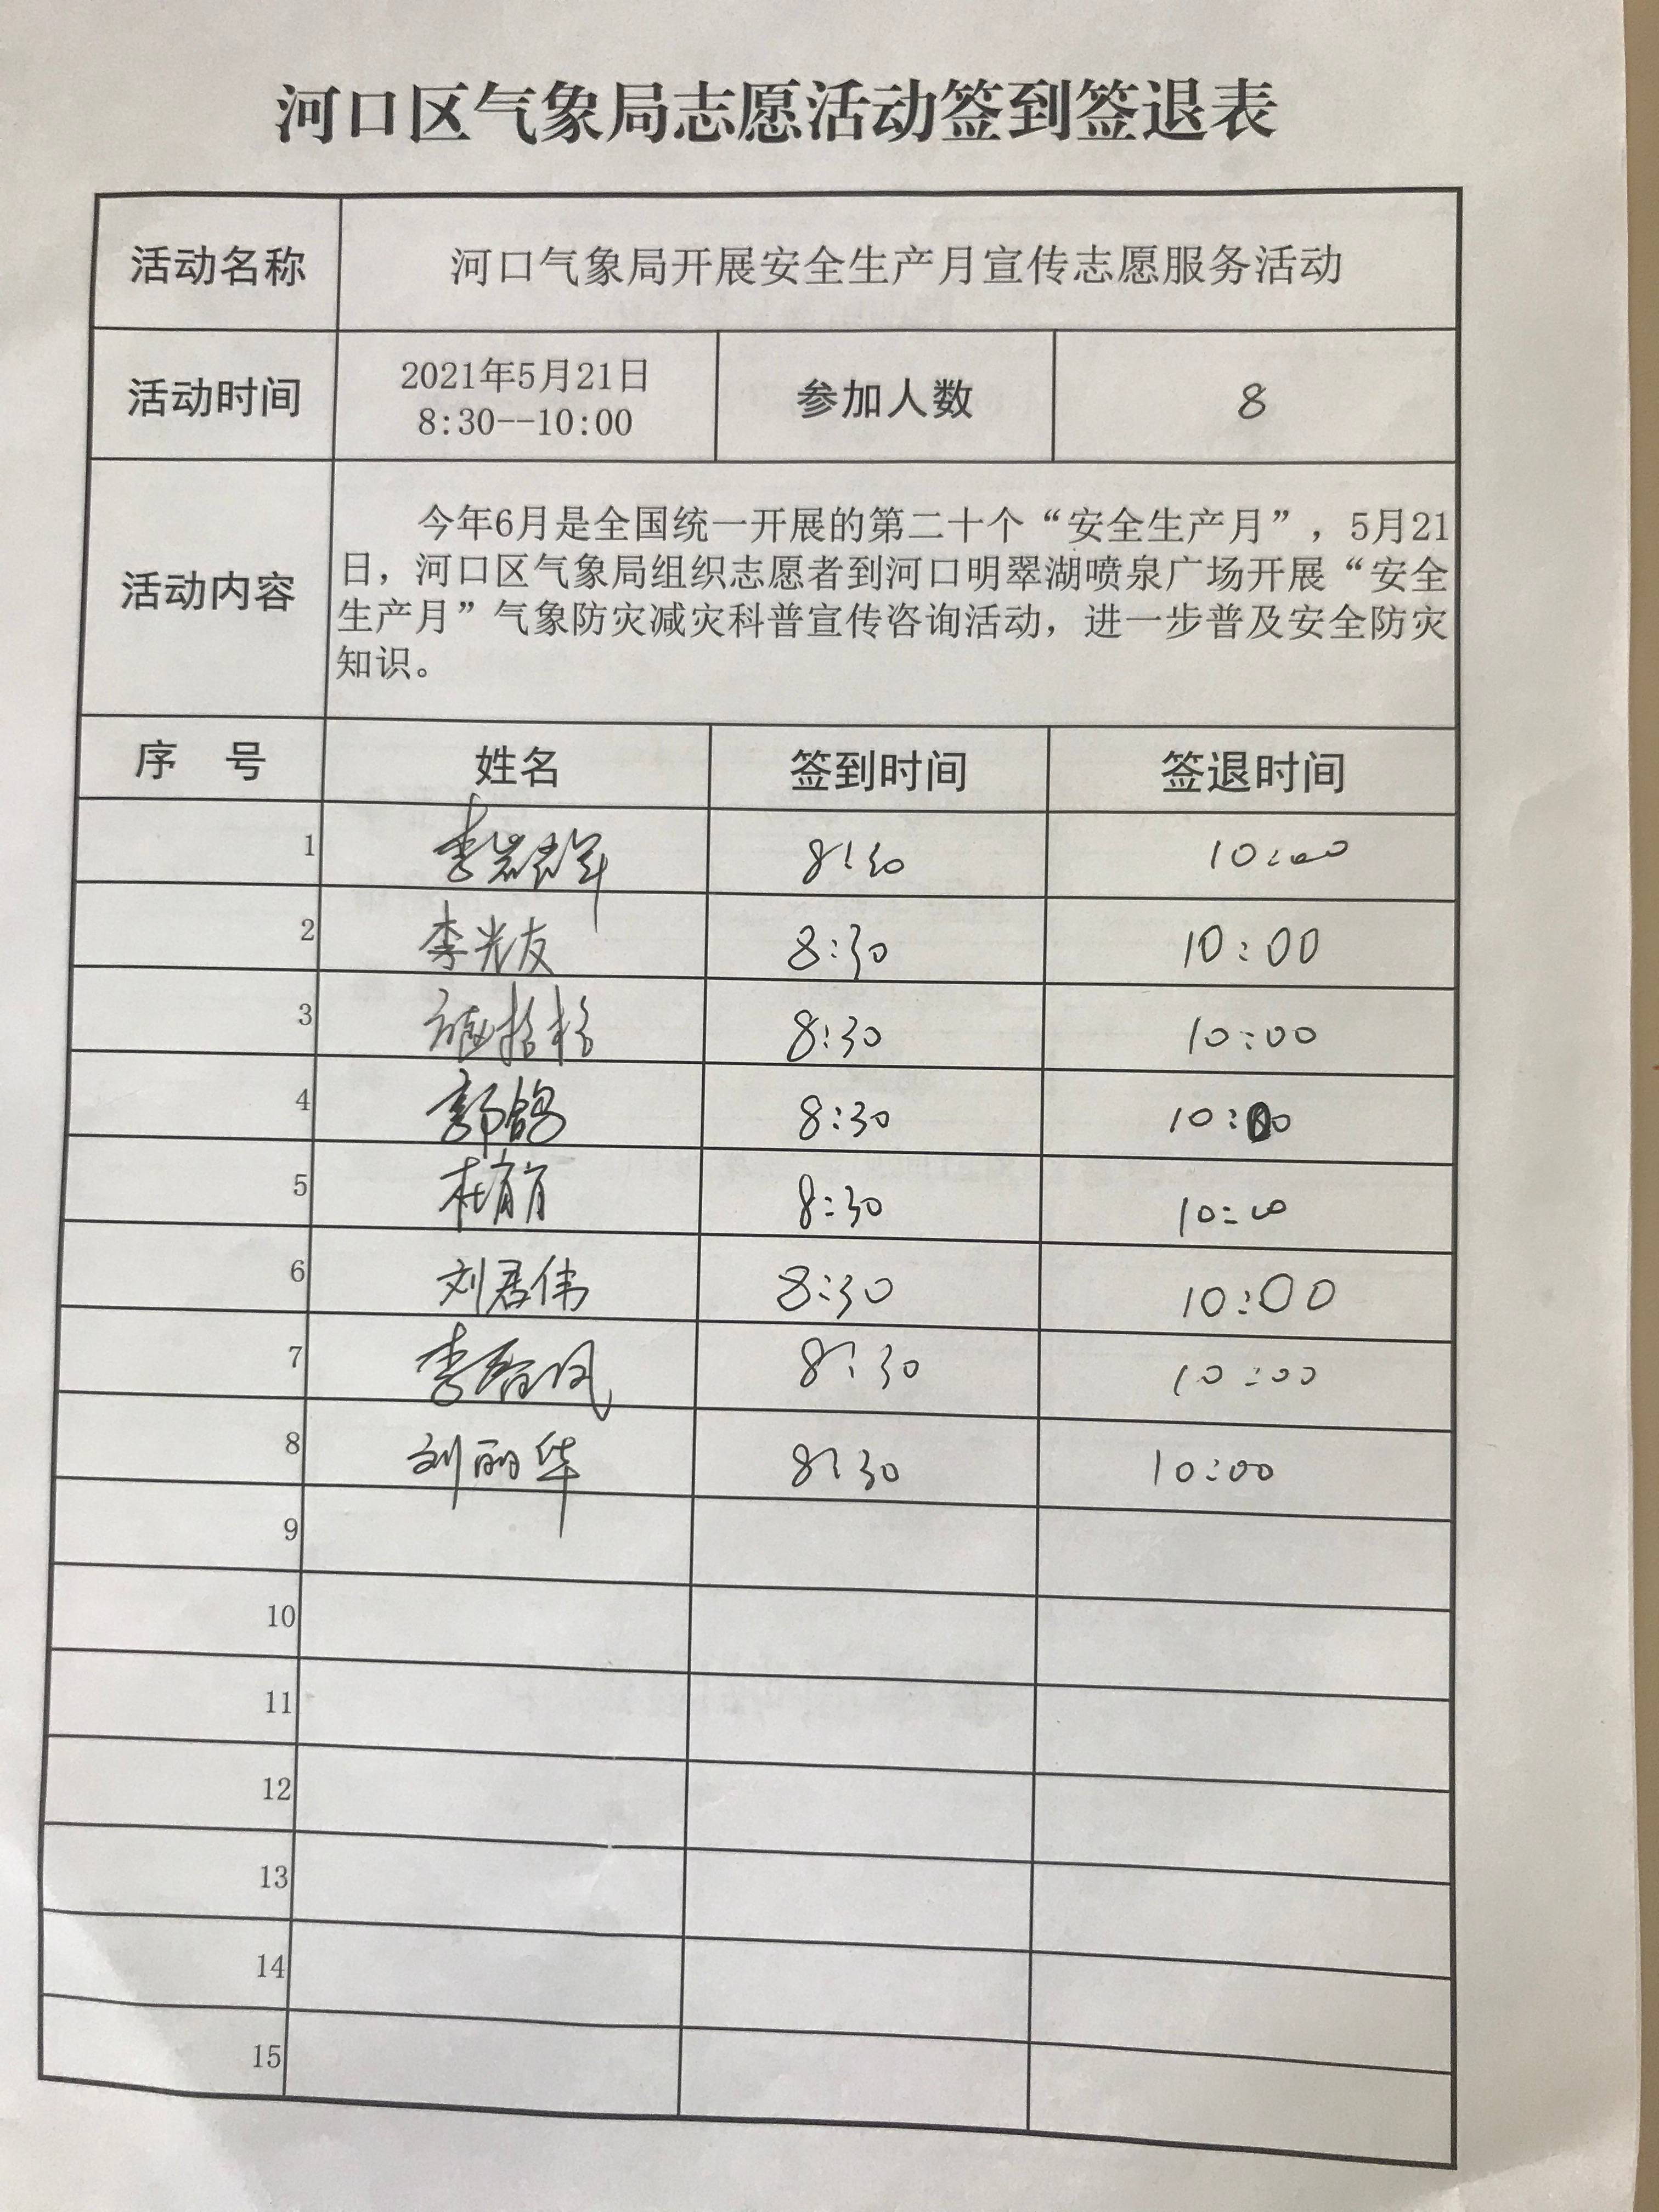 河口区气象局志愿活动签到签退表
活动名称 河口气象局开展安全生产月宣传志愿服务活动
活动时间 2021年5月21日 8:30--10:00 参加人数 8
活动内容
今年6月是全国统一开展的第二十个“安全生产月”，5月21
日，河口区气象局组织志愿者到河口明翠湖喷泉广场开展“安全
生产月”气象防灾减灾科普宣传咨询活动，进一步普及安全防灾
知识。
序 号 姓名 签到时间 签退时间
1 李 8:30 10:00
2 李光友 8:30 10:00
3 8:30 10:00
4 郭鸽 8:30 10:00
5 杜育育 8:30 10:00
6 刘君伟 8:30 10:00
7 李 8:30 10:00
8 刘丽华 8:30 10:00
9
10
11
12
13
14
15